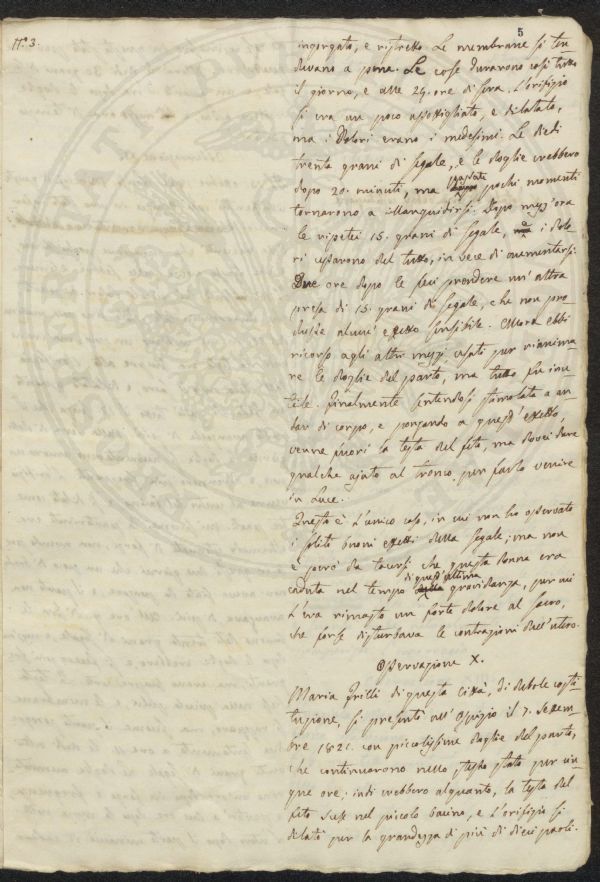 N.° 3.
5
ingorgato, e ristretto. Le membrane si ten-
devano a pena. Le cose durarono così tutto
il giorno, e alle 24. ore di sera l'orifizio
si era un poco assottigliato, e dilatato,
ma i Dolori erano i medesimi. Le diedi
trenta grani di segale, e le doglie crebbero
dopo 20. minuti, ma passati pochi momenti
tornarono a illanguidirsi. Dopo mezz'ora
le ripetei 15. grani di segale, i dolo-
ri cessarono del tutto, in vece di aumentarsi.
Due ore dopo le feci prendere un'altra
presa di 15. grani di segale, che non pro-
dusse alcun' effetto sensibile. Allora ebbi
ricorso agli altri mezzi usati per rianima-
re le doglie del parto, ma tutto fu inu-
tile. Finalmente sentendosi stimolata a an-
dar di corpo, e ponzando a quest'effetto,
venne fuori la testa del feto, ma dovei dare
qualche ajuto al tronco per farlo venire
in Luce.
Questo è l'unico caso, in cui non ho osservato
i soliti buoni effetti della segale; ma non
è però da tacersi che questa donna era
caduta nel tempo di quest'ultima gravidanza, per cui
l'era rimasto un forte dolore al sacro,
che forse disturbava le contrazioni dell'utero.
Osservazione X.
Maria Grilli di questa Città, di debole costi-
tuzione, si presentò all'Ospizio il 7. Settem-
bre 182 con piccolissime doglie del parto,
che continuarono nello stesso stato per cin-
que ore; indi crebbero alquanto, la testa del
feto scese nel piccolo bacino, e l'orifizio si
dilatò per la grandezza di più di dieci paoli.